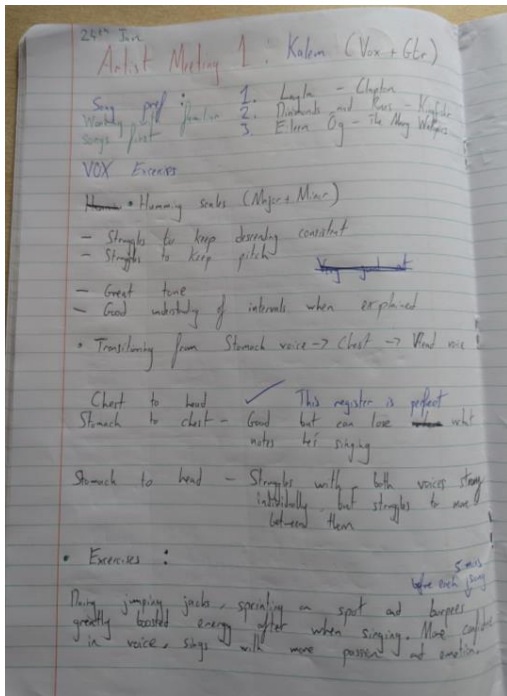 24th June
Artist Meeting 1: Kalem (Vox + Gtr)
Song pref:
Working familiar
songs first
1. Layla - Clapton
2. Diamonds and Rust -
3. Eileen Og - The
VOX Exercises
• Humming scales (Major + Minor)
- Struggles to keep descending consistent
- Struggles to keep pitch
- Great tone
- Good understanding of intervals when explained
• Transitioning from Stomach voice -> Chest -> Head voice
Chest to head ✓ This register is perfect
Stomach to chest - Good but can lose what
notes he's singing
Stomach to head - Struggles with, both voices strong
individually, but struggles to move
between them
• Exercises:
5 mins
before each song
Doing jumping jacks, sprinting on spot and burpees
greatly boosted energy after when singing. More confident
in voice, sings with more passion and emotion.